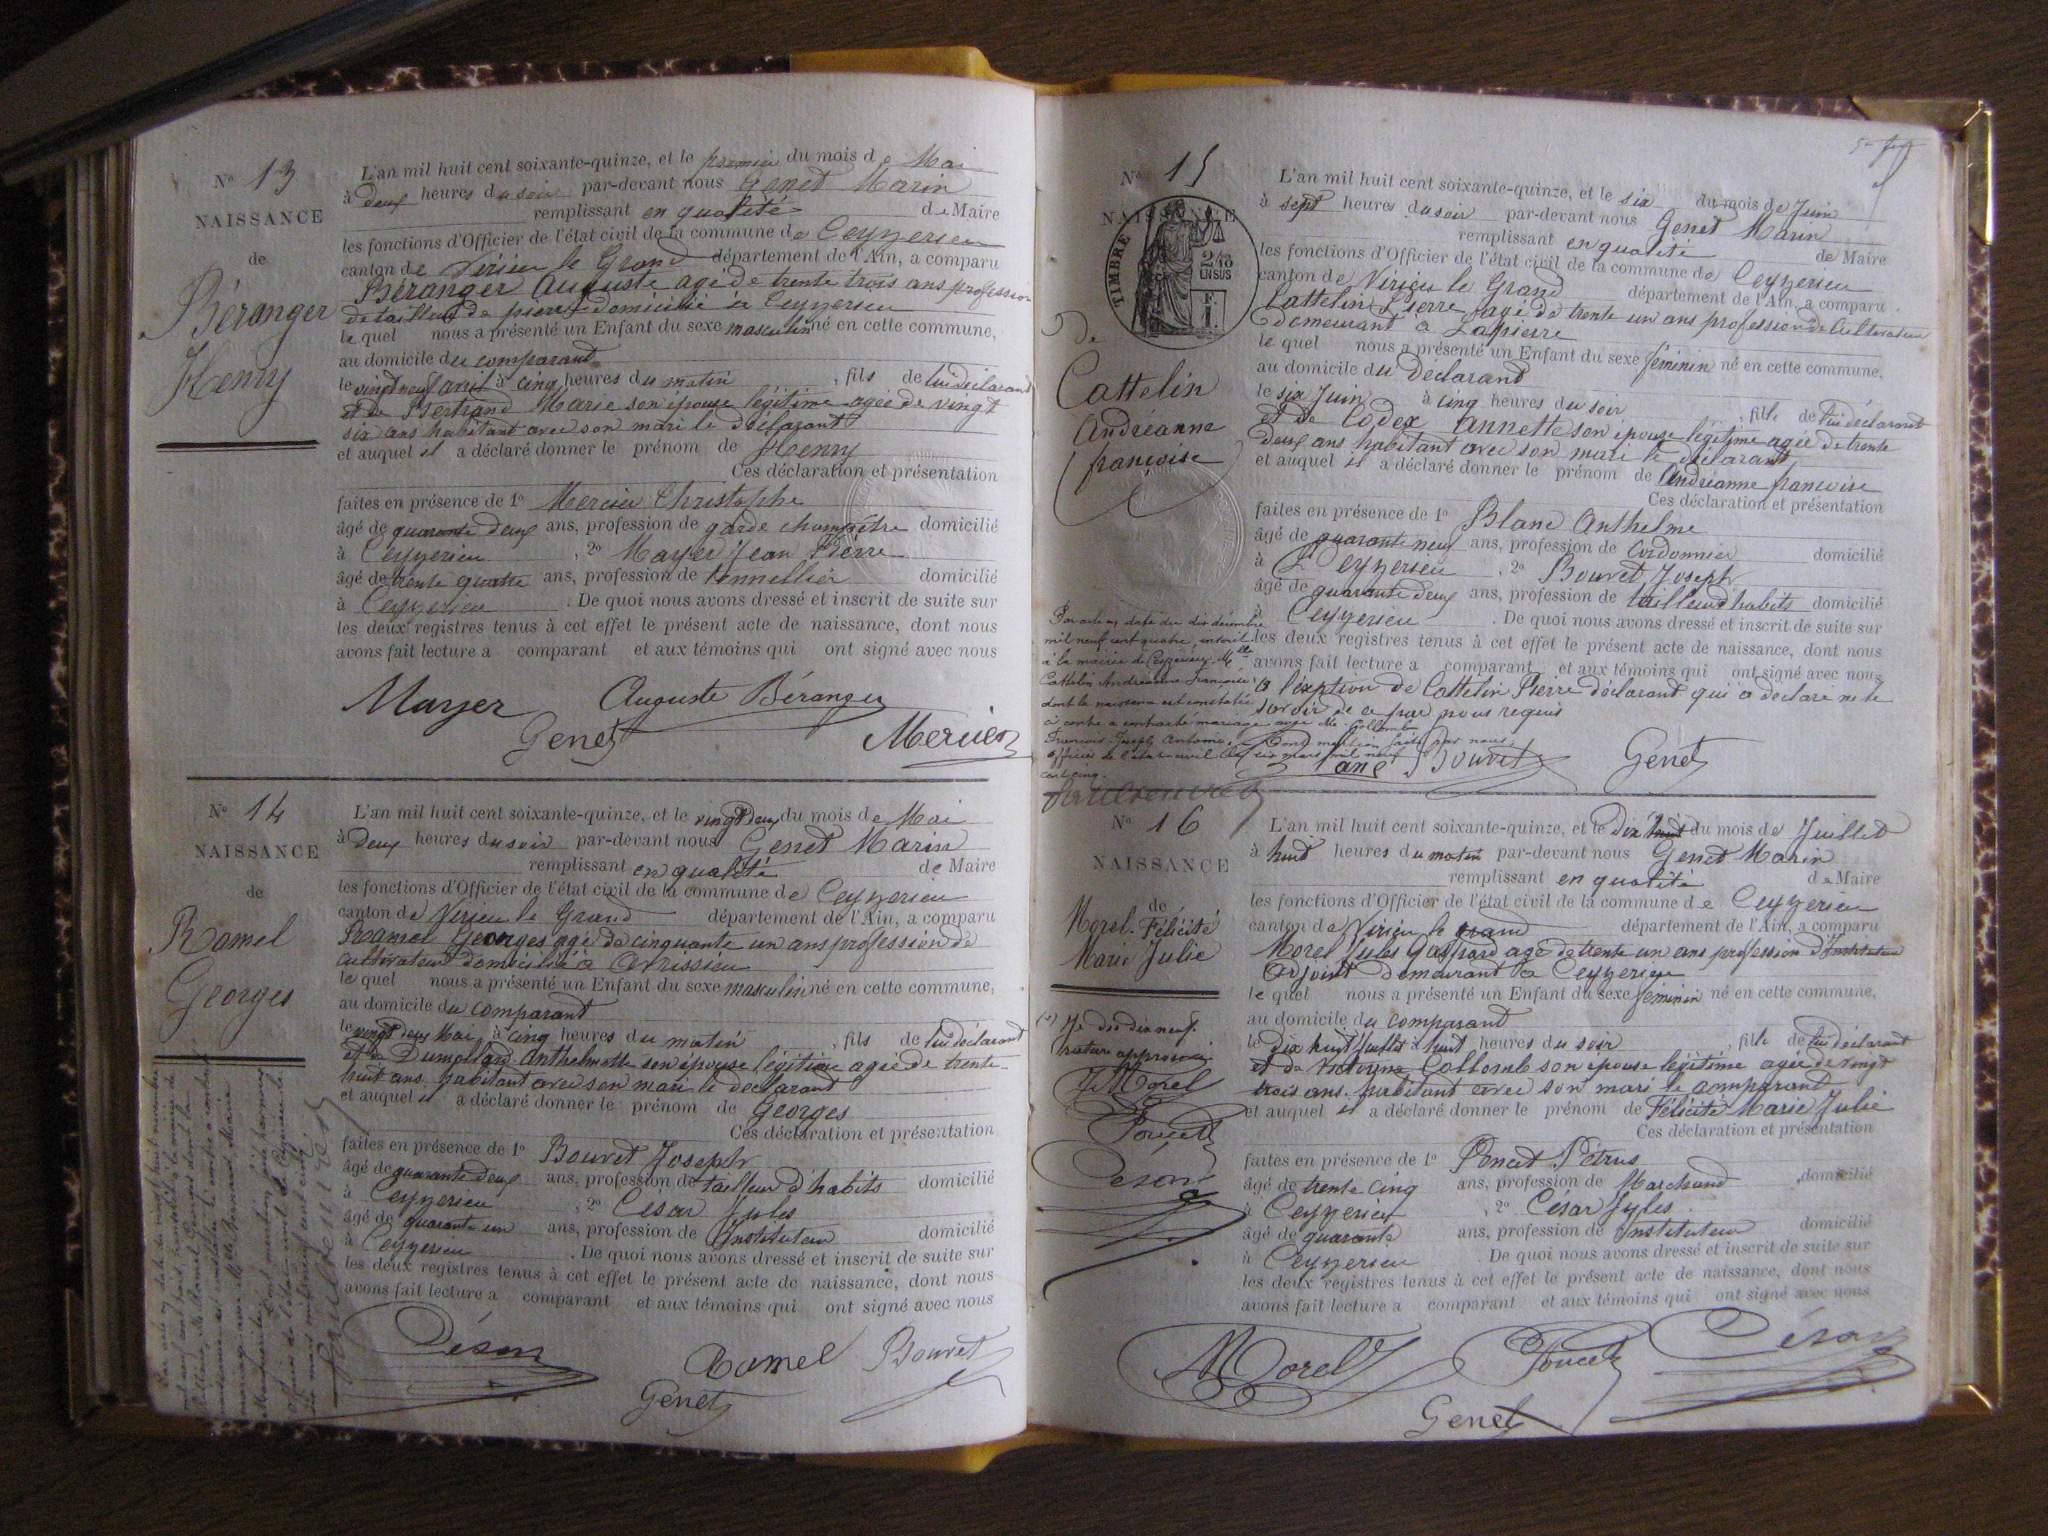 N° 13
NAISSANCE
de
Béranger
Henry
L'an mil huit cent soixante-quinze, et le premier du mois de Mai
à deux heures du soir par-devant nous Genet Marin
remplissant en qualité de Maire
les fonctions d'Officier de l'état civil de la commune de Ceyzerieu
canton de Virieu le Grand département de l'Ain, a comparu
Béranger Auguste agé de trente trois ans profession
de tailleur de pierre domicilié à Ceyzerieu
le quel nous a présenté un Enfant du sexe masculin né en cette commune,
au domicile du comparant
le vingt neuf avril à cinq heures du matin , fils de lui déclarant
et de Bertrand Marie son épouse légitime agée de vingt
six ans habitant avec son mari le déclarant
et auquel il a déclaré donner le prénom de Henry
Ces déclaration et présentation
faites en présence de 1° Mercier Christophe
âgé de quarante deux ans, profession de garde champêtre domicilié
à Ceyzerieu , 2° Mayer Jean Pierre
âgé de trente quatre ans, profession de tonnellier domicilié
à Ceyzerieu . De quoi nous avons dressé et inscrit de suite sur
les deux registres tenus à cet effet le présent acte de naissance, dont nous
avons fait lecture a comparant et aux témoins qui ont signé avec nous
Mayer Auguste Béranger
Genet Mercier
N° 14
NAISSANCE
de
Ramel
Georges
L'an mil huit cent soixante-quinze, et le vingt deux du mois de Mai
à deux heures du soir par-devant nous Genet Marin
remplissant en qualité de Maire
les fonctions d'Officier de l'état civil de la commune de Ceyzerieu
canton de Virieu le Grand département de l'Ain, a comparu
Ramel Georges agé de cinquante un ans profession de
cultivateur domicilié à Avrissieu
le quel nous a présenté un Enfant du sexe masculin né en cette commune,
au domicile du comparant
le vingt deux Mai à cinq heures du matin , fils de lui déclarant
et de Dumollard Anthelmette son épouse légitime agée de trente
huit ans habitant avec son mari le déclarant
et auquel il a déclaré donner le prénom de Georges
Ces déclaration et présentation
faites en présence de 1° Bouvet Joseph
âgé de quarante deux ans, profession de tailleur d'habits domicilié
à Ceyzerieu , 2° César Jules
âgé de quarante un ans, profession de Instituteur domicilié
à Ceyzerieu . De quoi nous avons dressé et inscrit de suite sur
les deux registres tenus à cet effet le présent acte de naissance, dont nous
avons fait lecture a comparant et aux témoins qui ont signé avec nous
César Ramel Bouvet
Genet
N° 15
NAISSANCE
TIMBRE
2/10
EN SUS
de
Cattelin
Andréanne
françoise
L'an mil huit cent soixante-quinze, et le six du mois de Juin
à sept heures du soir par-devant nous Genet Marin
remplissant en qualité de Maire
les fonctions d'Officier de l'état civil de la commune de Ceyzerieu
canton de Virieu le Grand département de l'Ain, a comparu
Cattelin Pierre agé de trente un ans profession de Cultivateur
demeurant à Lapierre
le quel nous a présenté un Enfant du sexe féminin né en cette commune,
au domicile du Déclarant
le six Juin à cinq heures du soir , fille de lui déclarant
et de Codex Annette son épouse légitime agée de trente
deux ans habitant avec son mari le déclarant
et auquel il a déclaré donner le prénom de Andréanne françoise
Ces déclaration et présentation
faites en présence de 1° Blanc Anthelme
âgé de quarante neuf ans, profession de Cordonnier domicilié
à Ceyzerieu , 2° Bouvet Joseph
âgé de quarante deux ans, profession de tailleur d'habits domicilié
à Ceyzerieu . De quoi nous avons dressé et inscrit de suite sur
les deux registres tenus à cet effet le présent acte de naissance, dont nous
avons fait lecture a comparant et aux témoins qui ont signé avec nous
a l'éxeption de Cattelin Pierre déclarant qui a déclaré ne le
savoir de ce par nous requis
Par acte en date du dix décembre
mil neuf cent quatre, inscrit
à la mairie de Ceyzerieu, Mlle
Cattelin Andréanne Françoise
dont la naissance est constatée
ci contre a contracté mariage avec Mr Collomb
François Joseph Antoine. Dont mention faite par nous
officier de l'état civil le six mars mil neuf
cent cinq.
Bouvet Genet
N° 16
NAISSANCE
de
Morel Félicité
Marie Julie
L'an mil huit cent soixante-quinze, et le dix huit du mois de Juillet
à huit heures du matin par-devant nous Genet Marin
remplissant en qualité de Maire
les fonctions d'Officier de l'état civil de la commune de Ceyzerieu
canton de Virieu le grand département de l'Ain, a comparu
Morel Jules Gaspard agé de trente un ans profession d'Instituteur
adjoint demeurant à Ceyzerieu
le quel nous a présenté un Enfant du sexe féminin né en cette commune,
au domicile du comparant
le dix huit Juillet à huit heures du soir , fille de lui déclarant
et de Victorine Collomb son épouse légitime agée de vingt
trois ans habitant avec son mari le comparant
et auquel il a déclaré donner le prénom de Félicité Marie Julie
Ces déclaration et présentation
faites en présence de 1° Poncet Pétrus
âgé de trente cinq ans, profession de Marchand domicilié
à Ceyzerieu , 2° César Jules
âgé de quarante ans, profession de Instituteur domicilié
à Ceyzerieu . De quoi nous avons dressé et inscrit de suite sur
les deux registres tenus à cet effet le présent acte de naissance, dont nous
avons fait lecture a comparant et aux témoins qui ont signé avec nous
dix neuf.
rature approuvée
J. Morel
Poncet
César
Morel J Poncet César
Genet